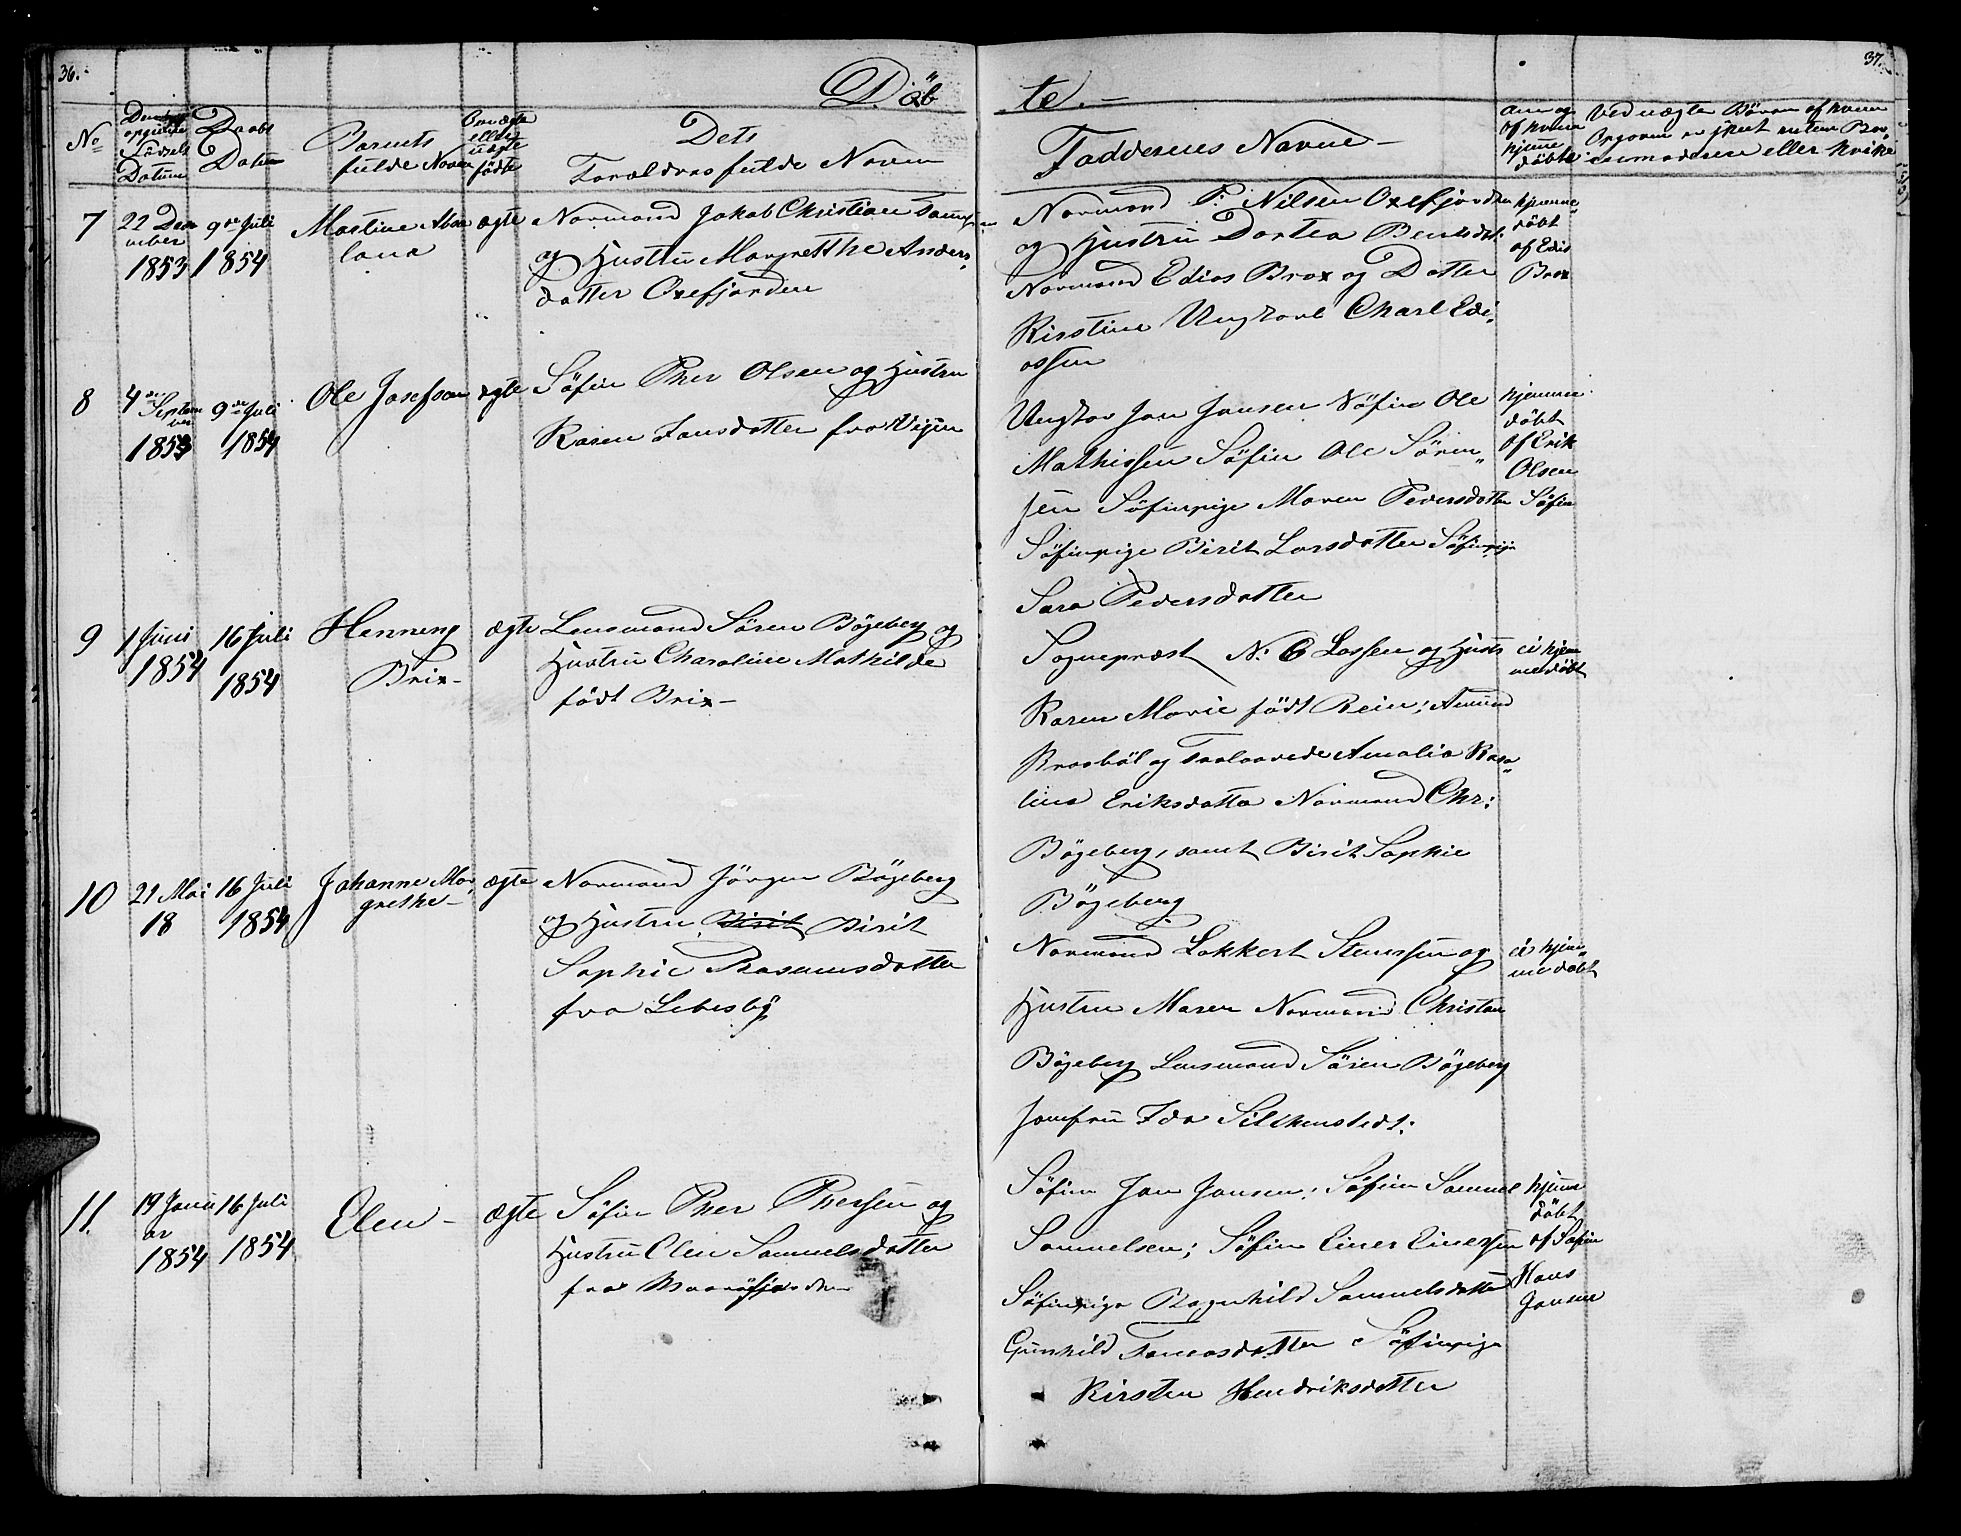 36.
Döb
te.-
37.
No
opgivne
Fødsels
Datum
Daabs
Datum
Barnets
fulde Navn
Om ægte
eller
uægte
födte
Dets
Foreldres fulde Navn
Faddernes Navne-
om og
af hvem
hjeme
döbte.
Ved uægte Börn af hvem
Opgaven er skeet enten Bar,
nemoderen eller hvilke
7
22 Dec
ember
1853
9de Juli
1854
Martine Abe
lone
ægte
Normand Jakob Christian
og Hustru Margretthe Anders,
datter Oxefjorden
Normand P. Nilsen Oxefjorden
og Hustru Dortea
Normand Edias Brox og Datter
Kirstine Ungkarl Charl Edi,
assen
hjemme,
döbt
af Edis
Brox
8
4de
Septem
ber
1853
9de Juli
1854
Ole Josefsen
ægte
Söfin Pher Olsen og Hustru
Karen Jansdatter fra Vigen
Ungkar Jon Jansen Söfin Ole
Mathissen Söfin Ole Sören,,
sen Söfinpige Maren Pedersdatter
Söfinpige Birit Larsdatter Söfinpige
Sara Pedersdatter
hjemme
döbt
af Erik
Olsen
Söfin
9
1 Juni
1854
16 Juli
1854
Henning
Brix-
ægte
Lensmand Sören Bögeberg og
Hustru Charoline Mathilde
födt Brix-
Sogneprest N: C Lassen og Hustr
Karen Marie födt Reier; Amund
Braaböl og Amalia Rosa
lina Eriksdatter Normand Chr:
Bögeberg, samt Birit Sophie
Bögeberg
ei hjem
medöbt
10
21 Mai
18
16 Juli
1854
Johanne Mar,
grethe-
ægte
Normand Jörgen Bögeberg
og Hustru Birit Birit
Sophie Rasmusdatter
fra Lebesby
Normand Lokkert Stenssen og
Hustru Maren Normand Christen
Bögeberg Lensmand Sören Bögeberg
Jomfru Ida Silkenstedt.
ei hjem,,
medöbt
11.
19 Janu
ar
1854
16 Juli
1854
Elen-
ægte
Söfin Pher Phersen og
Hustru Elen Samuelsdatter
fra
Söfin Jon Jansen; Söfin Samuel
Samuelsen; Söfin Einer Einersen
Söfinpige Ragnhild Samuelsdatter
Gunhild Tomasdatter Söfinpige
Kirsten Hendriksdatter
hjem
döbt
af Söfin
Hans
Jansen